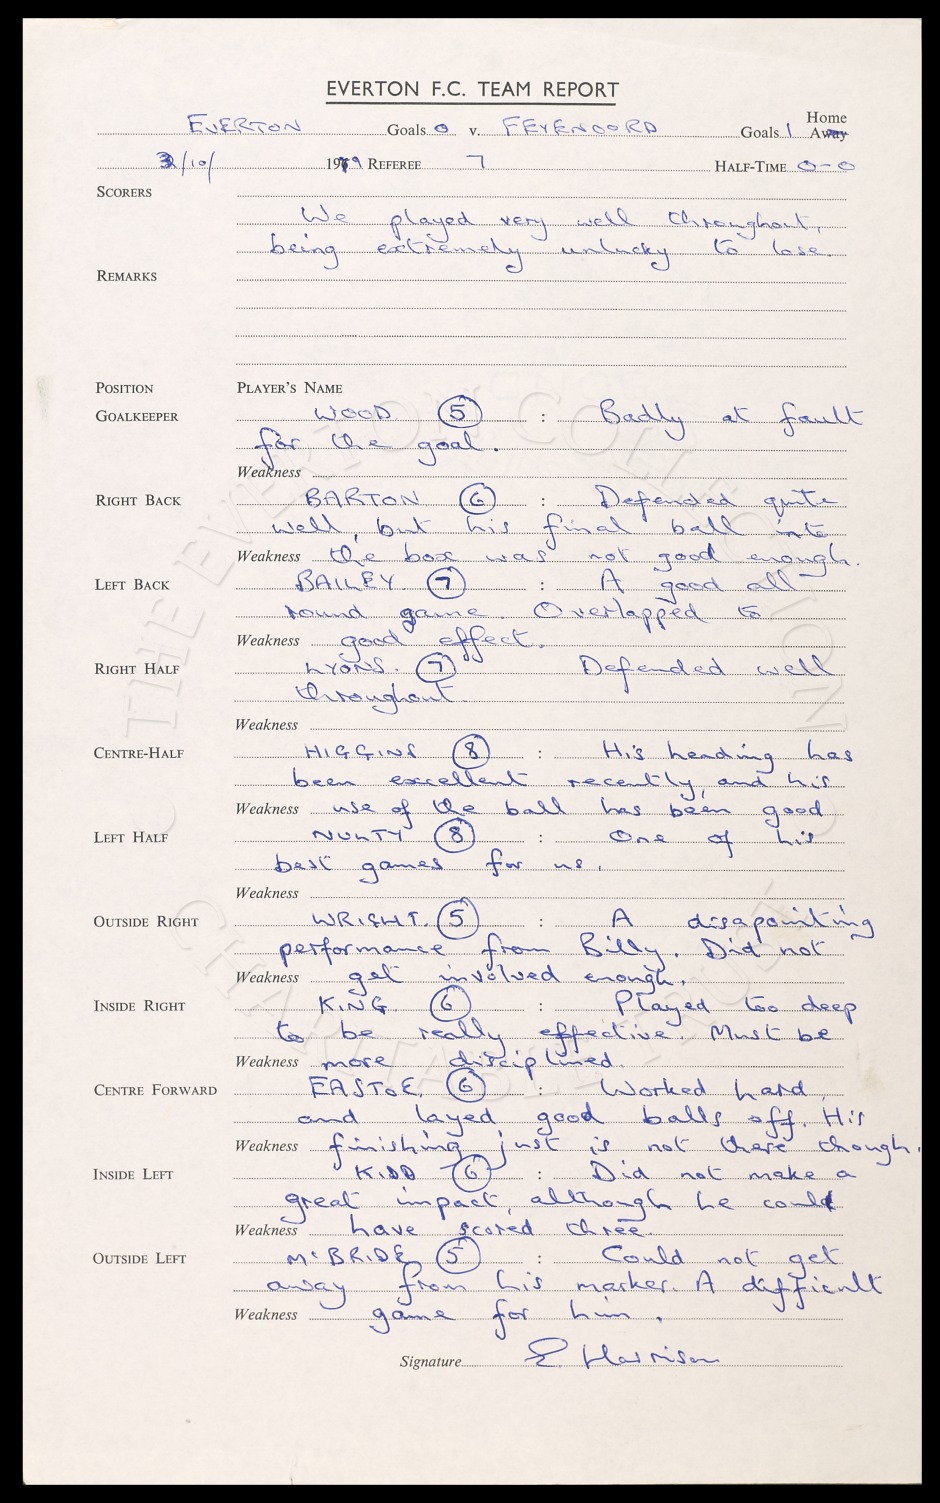 EVERTON F.C. TEAM REPORT
Home
EVERTON Goals 0 v. FEYENOORD Goals 1 Away
3/10/ 1979 REFEREE 7 HALF-TIME 0-0
SCORERS
We played very well throughout,
being extremely unlucky to lose.
REMARKS
POSITION PLAYER'S NAME
GOALKEEPER WOOD 5 : Badly at fault
for the goal.
Weakness
RIGHT BACK BARTON 6 : Defended quite
well, but his final ball into
Weakness the box was not good enough.
LEFT BACK BAILEY 7 : A good all
round game. Overlapped to
Weakness good effect.
RIGHT HALF LYONS. 7 Defended well
throughout
Weakness
CENTRE-HALF HIGGINS 8 : His heading has
been excellent recently, and his
Weakness use of the ball has been good
LEFT HALF NULTY 8 : One of his
best games for us.
Weakness
OUTSIDE RIGHT WRIGHT. 5 : A disapointing
performance from Billy. Did not
Weakness get involved enough.
INSIDE RIGHT KING 6 : Played too deep
to be really effective. Must be
Weakness more disciplined.
CENTRE FORWARD EASTOE. 6 : Worked hard,
and layed good balls off. His
Weakness finishing just is not there though.
INSIDE LEFT KIDD 6 : Did not make a
great impact, although he could
Weakness have scored three.
OUTSIDE LEFT McBRIDE 5 : Could not get
away from his marker. A difficult
Weakness game for him.
Signature E Harrison
THE EVERTON COLLECTION
CHARITABLE TRUST